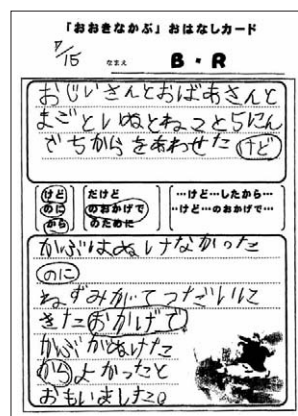 「おおきなかぶ」おはなしカード
7/15 なまえ B・R
おじいさんとおばあさんと
まごといぬとねこと5にん
でちからをあわせた けど
けど だけど …けど…したから…
のに のおかげで …けど…のおかげで…
から のために
かぶはぬけなかった
のに
ねずみがてつだいに
きた おかげで
かぶがぬけた
からよかったと
おもいました。